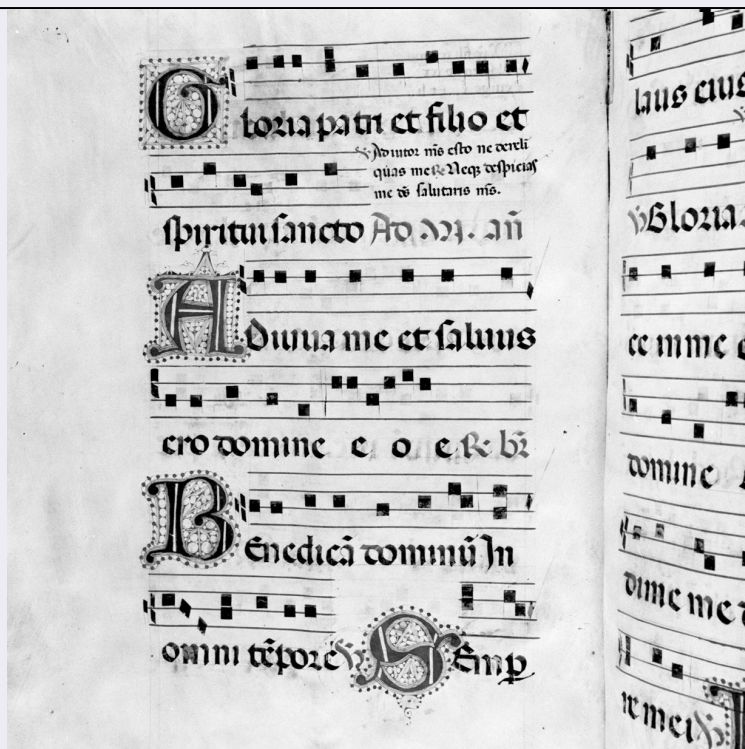 Gloria patri et filio et
℣ Adiutor m̄s esto ne dereli
quas me ℟ Neqȝ despicias
me dē salutaris m̄s.
spiritui sancto Ad an̄
Adiuua me et saluus
ero domine e o e ℟ br̄
Benedicā dominū In
omni tēpore ℣ Semꝑ
laus eius
℣ Gloria
domine
dime me